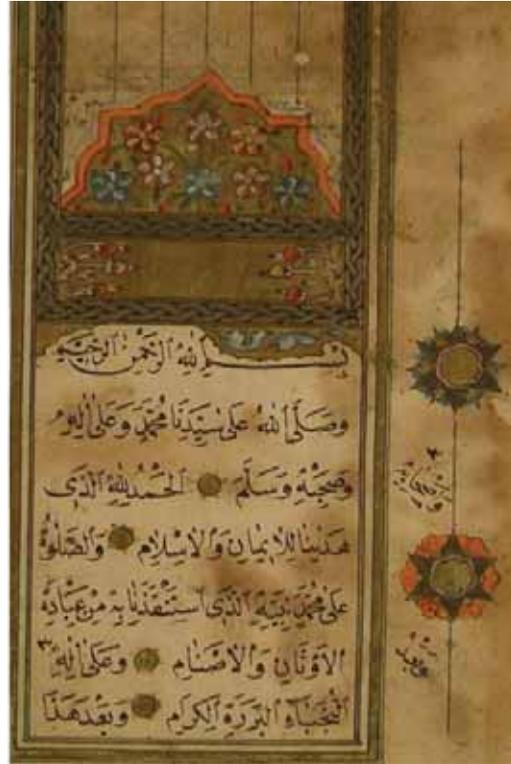 بِسْمِ اللهِ الرَّحْمٰنِ الرَّحِيمِ
وَصَلَّى اللهُ عَلَى سَيِّدِنَا مُحَمَّدٍ وَعَلَى اٰلِهِ
وَصَحْبِهِ وَسَلَّمَ اَلْحَمْدُ لِلّٰهِ الَّذِى
هَدٰينَا لِلْاِيمَانِ وَالْاِسْلَامِ وَالصَّلٰوةُ
عَلَى مُحَمَّدٍ نَبِيِّهِ الَّذِى اسْتَنْقَذَنَا بِهِ مِنْ عِبَادَةِ
الْاَوْثَانِ وَالْاَصْنَامِ وَعَلَى اٰلِهِ
النُّجَبَاءِ الْبَرَرَةِ الْكِرَامِ وَبَعْدَ هٰذَا
وَاَصْحَابِهِ